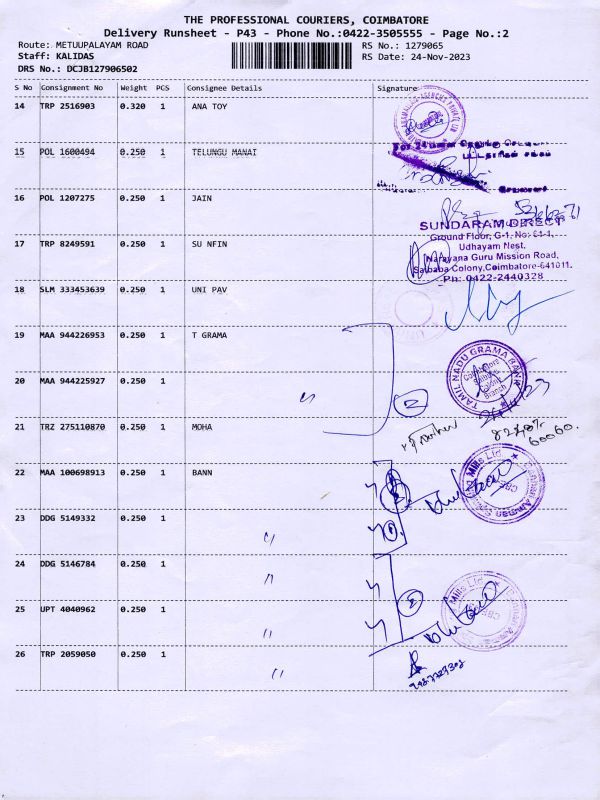 THE PROFESSIONAL COURIERS, COIMBATORE
Delivery Runsheet - P43 - Phone No.:0422-3505555 - Page No.:2
Route: METUUPALAYAM ROAD
RS No.: 1279065
Staff: KALIDAS
RS Date: 24-Nov-2023
DRS No.: DCJB127906502
S No Consignment No Weight PCS Consignee Details Signature
14 TRP 2516903 0.320 1 ANA TOY
15 POL 1600494 0.250 1 TELUNGU MANAI
16 POL 1207275 0.250 1 JAIN
SUNDARAM DIRECT
Ground Floor, G-1, No: 61-1,
17 TRP 8249591 0.250 1 SU NFIN
Udhayam Nest,
Narayana Guru Mission Road,
Saibaba Colony, Coimbatore-641011.
Ph: 0422-2440328
18 SLM 333453639 0.250 1 UNI PAV
19 MAA 944226953 0.250 1 T GRAMA
TAMIL NADU GRAMA BANK
Branch
20 MAA 944225927 0.250 1 〃
2
21 TRZ 275110870 0.250 1 MOHA
60060.
22 MAA 100698913 0.250 1 BANN
Mills Ltd
CBE
23 DDG 5149332 0.250 1 〃
24 DDG 5146784 0.250 1 〃
Mills Ltd
CBE
25 UPT 4040962 0.250 1 〃
26 TRP 2059050 0.250 1 〃